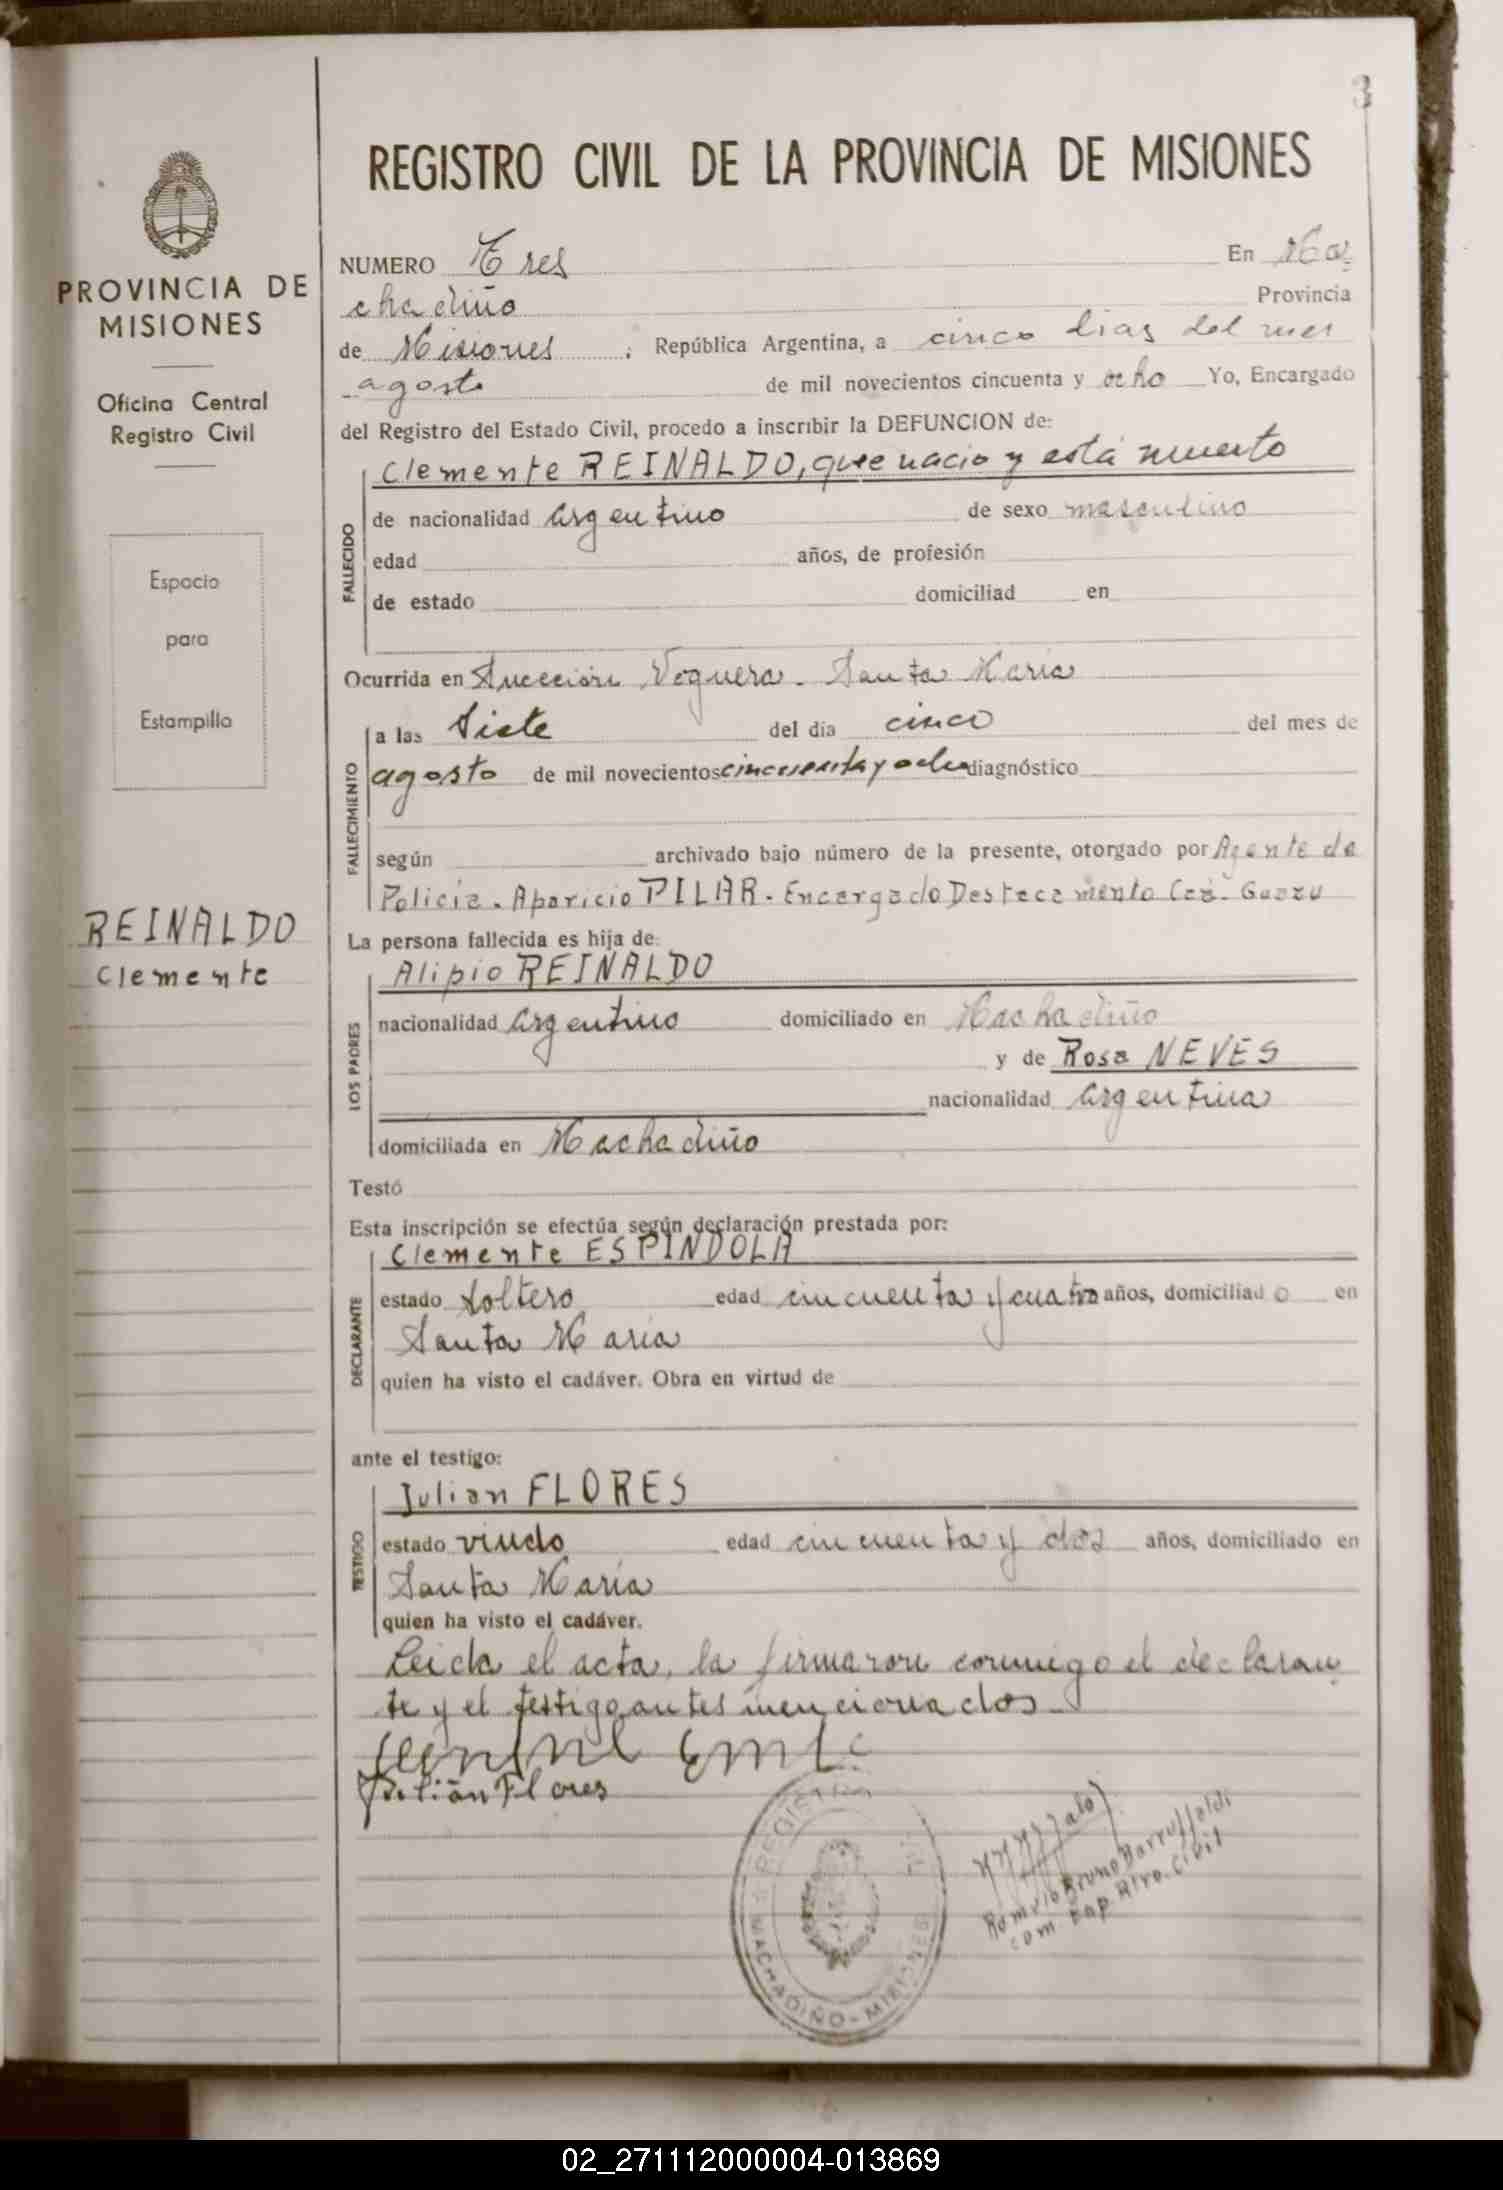 3
REGISTRO CIVIL DE LA PROVINCIA DE MISIONES
PROVINCIA DE
MISIONES
Oficina Central
Registro Civil
Espacio
para
Estampilla
REINALDO
Clemente
NUMERO Tres En Ma-
chadiño Provincia
de Misiones ; República Argentina, a cinco dias del mes
agosto de mil novecientos cincuenta y ocho Yo, Encargado
del Registro del Estado Civil, procedo a inscribir la DEFUNCION de:
FALLECIDO
Clemente REINALDO, que nacio y está muerto
de nacionalidad argentino de sexo masculino
edad años, de profesión
de estado domiciliad en
Ocurrida en Succción Noguera - Santa Maria
FALLECIMIENTO
a las Siete del día cinco del mes de
agosto de mil novecientos cincuenta y ocho diagnóstico
según archivado bajo número de la presente, otorgado por Agente de
Policía - Aparicio PILAR - Encargado Destacamento Caá-Guazu
La persona fallecida es hija de:
LOS PADRES
Alipio REINALDO
nacionalidad argentino domiciliado en Machadiño
y de Rosa NEVES
nacionalidad argentina
domiciliada en Machadiño
Testó
Esta inscripción se efectúa según declaración prestada por:
DECLARANTE
Clemente ESPINDOLA
estado soltero edad cincuenta y cuatro años, domiciliad o en
Santa Maria
quien ha visto el cadáver. Obra en virtud de
ante el testigo:
TESTIGO
Julian FLORES
estado viudo edad cincuenta y dos años, domiciliado en
Santa Maria
quien ha visto el cadáver.
Leida el acta, la firmaron conmigo el declaran-
te y el testigo antes mencionados
Julián Flores
REGISTRO CIVIL
MACHADIÑO - MISIONES
Romulo Bruno Barruffaldi
com Enp. Rtro. Civil
02_271112000004-013869